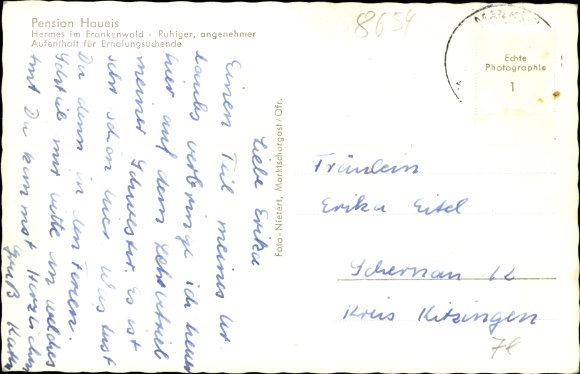 Pension Haueis
Hermes im Frankenwald - Ruhiger, angenehmer
Aufenthalt für Erholungsuchende
8654
MANN
Echte
Photographie
1
Liebe Erika
Einen Teil meines Ur-
laubs verbringe ich heuer
hier auf dem Lehrbetrieb
meiner Schwester. Es ist
sehr schön hier. Was tust
Du denn in den Ferien.
Schreib mir bitte in welches
Du kommst Herzlichen
Gruß
Foto - Nietert, Marktschorgast/Ofr.
Fräulein
Erika Eitel
Schernau 12
Kreis Kitzingen